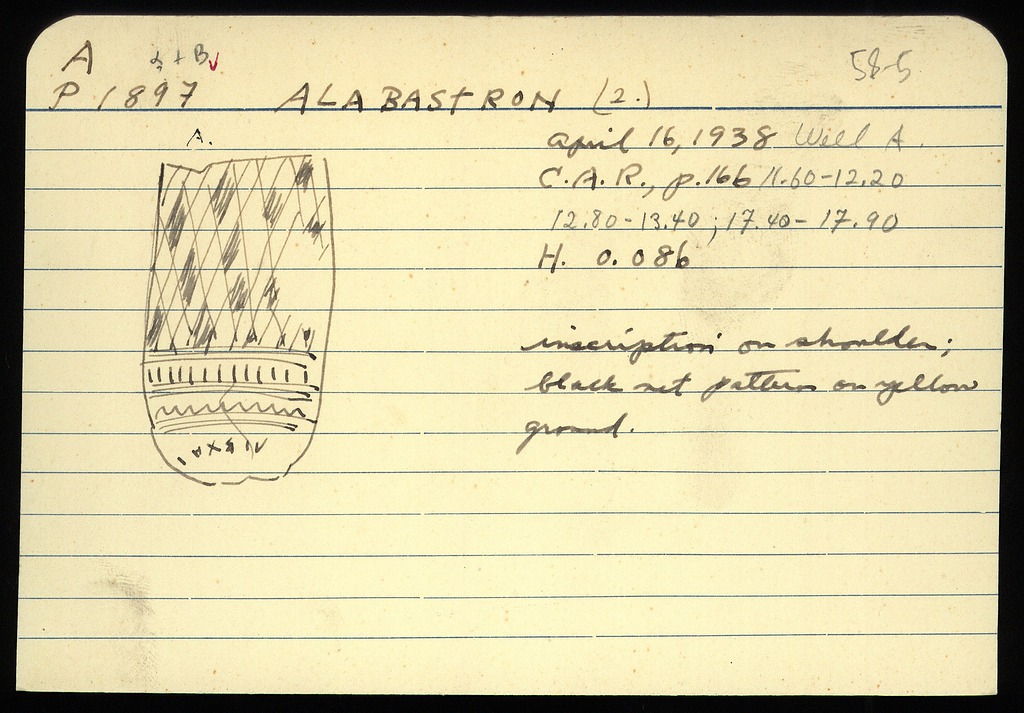 A
A + B
58-5
P 1897 ALABASTRON (2.)
A.
April 16, 1938 Well A.
C.A.R., p.166 11.60-12.20
12.80-13.40; 17.40-17.90
H. 0.086
inscription on shoulder;
black net pattern on yellow
ground.